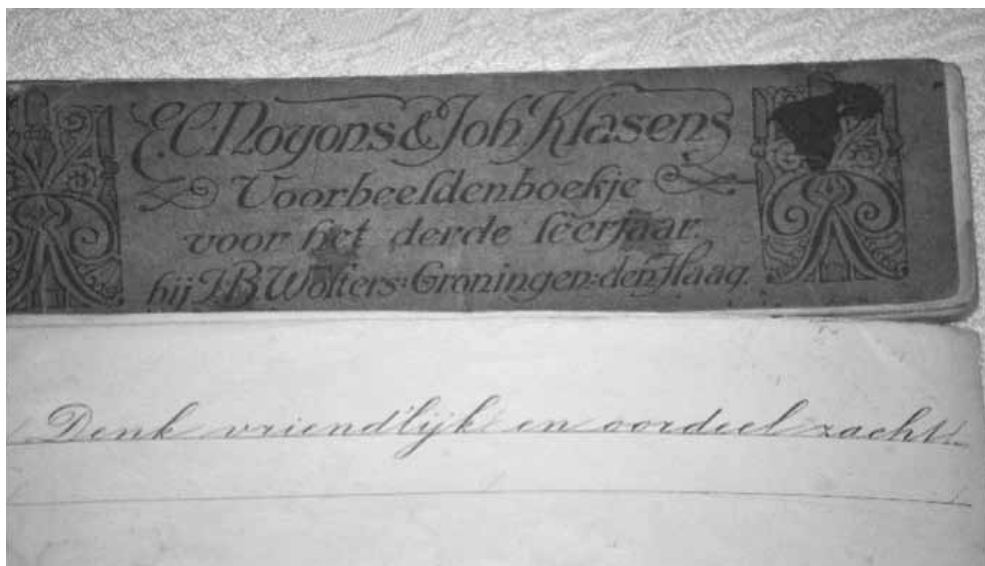 E.C. Noyons & Joh Klasens
Voorbeeldenboekje
voor het derde leerjaar.
bij J.B. Wolters: Groningen: den Haag.
Denk vriend'lijk en oordeel zacht.